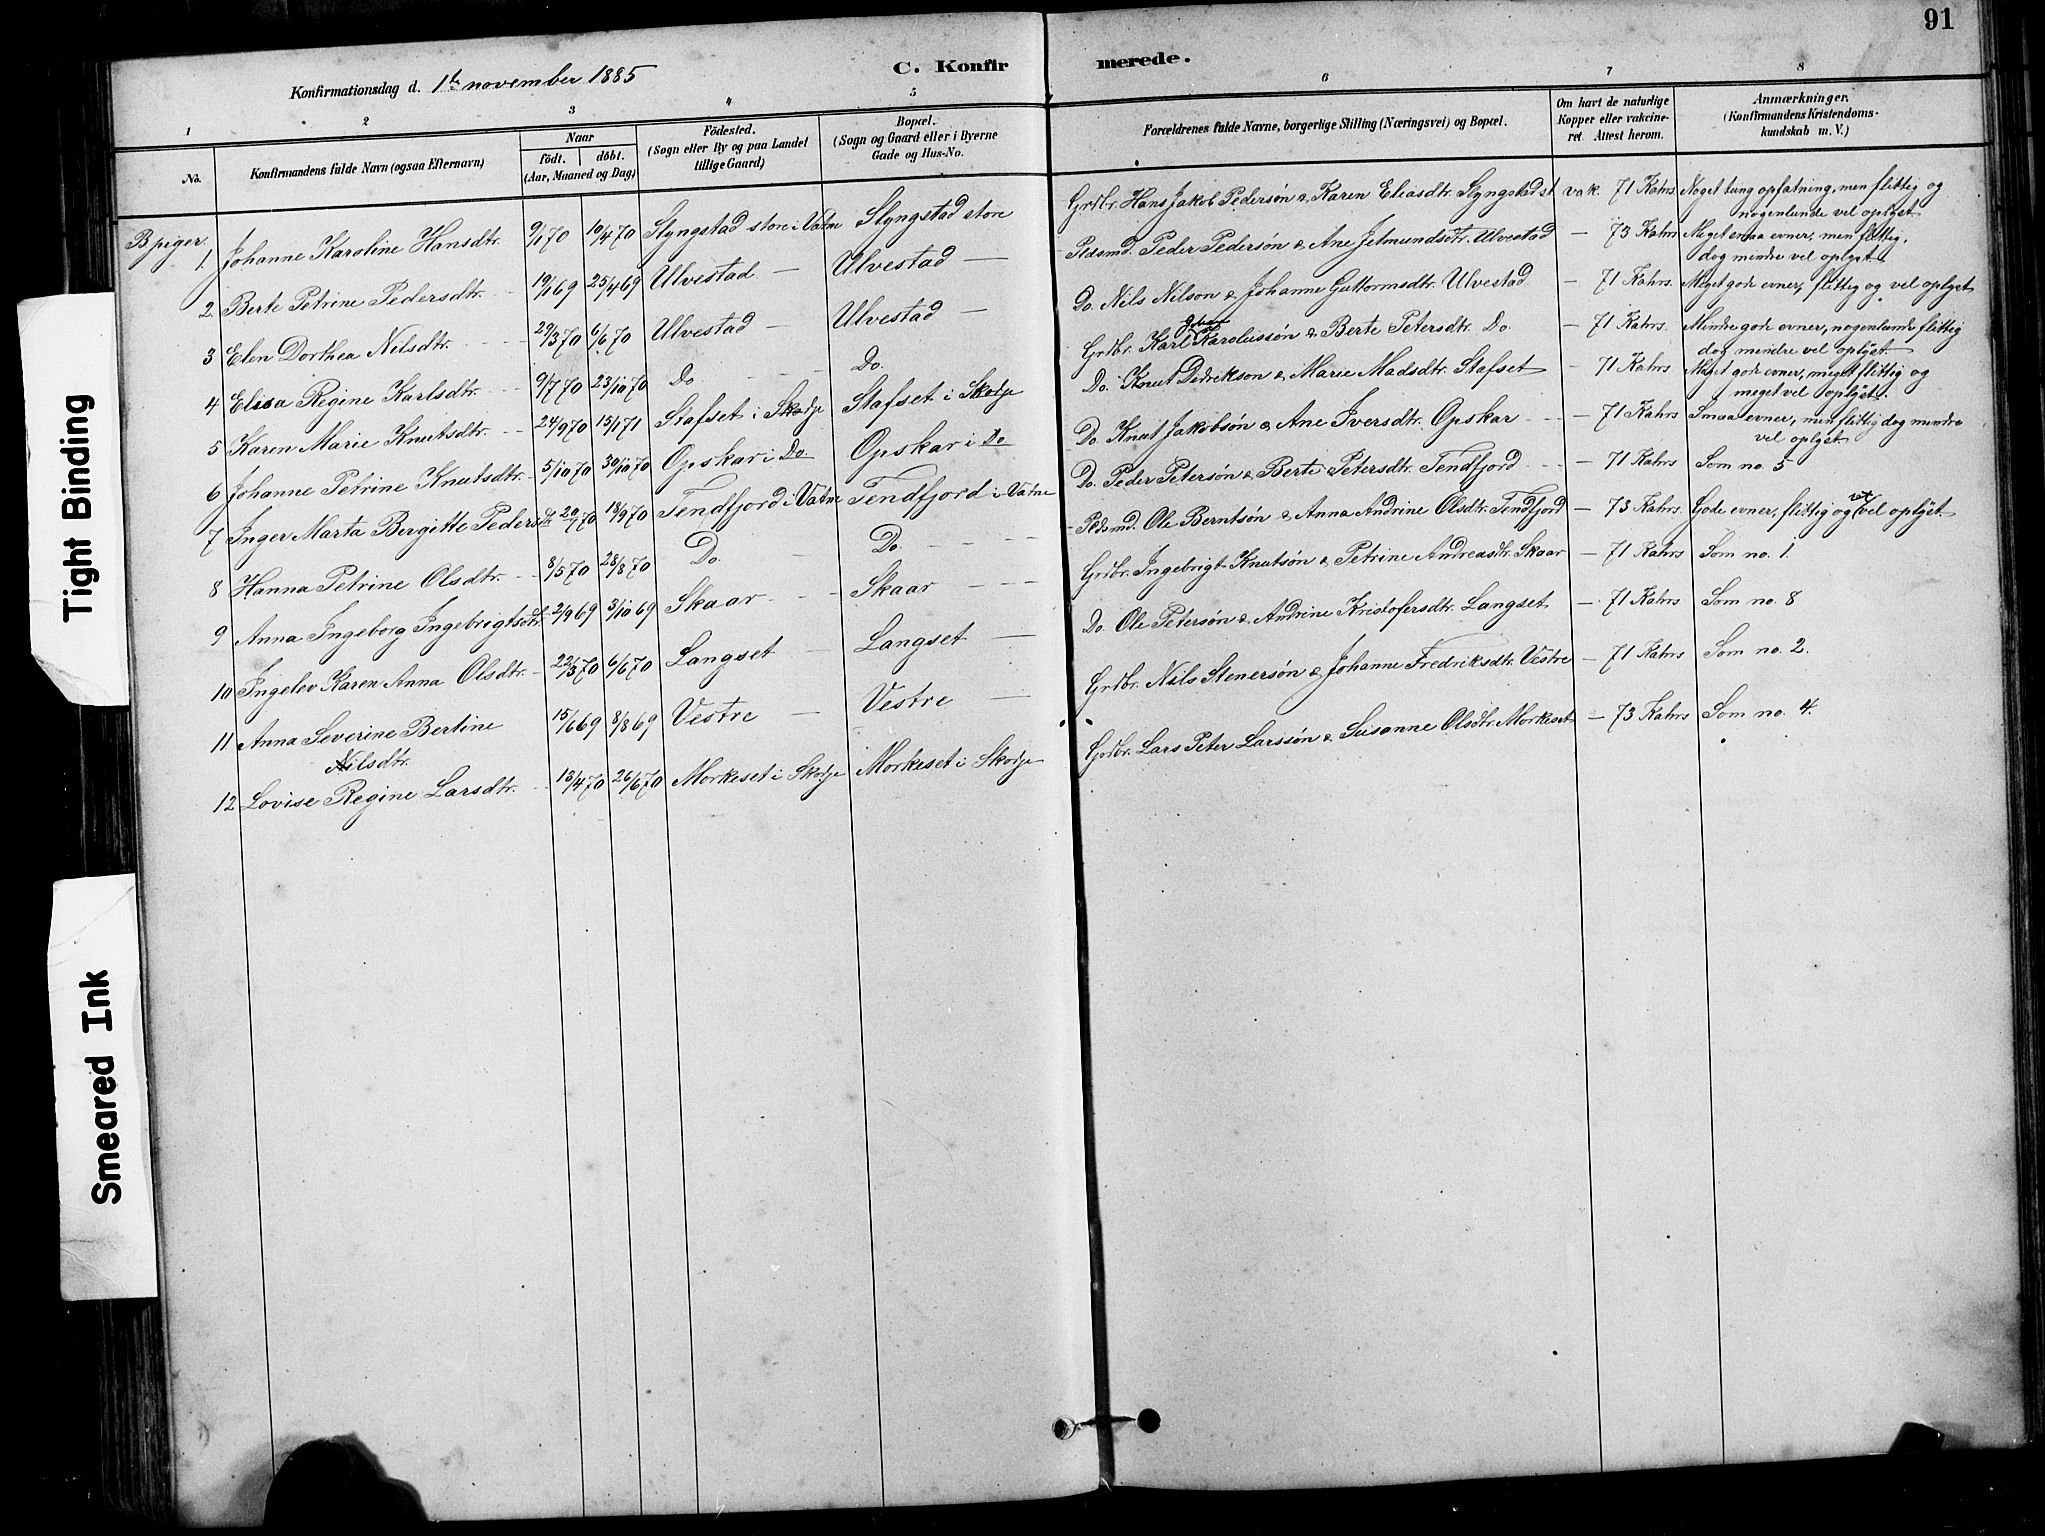 91
C. Konfir merede.
Konfirmationsdag d. 1ste november 1885
1 2 3 4 5 6 7 8
No.
Konfirmandens fulde Navn (ogsaa Efternavn)
Naar
födt. döbt.
(Aar, Maaned og Dag)
Födested.
(Sogn eller By og paa Landet
tillige Gaard)
Bopæl.
(Sogn og Gaard eller i Byerne
Gade og Hus-No.
Forældrenes fulde Navne, borgerlige Stilling (Næringsvei) og Bopæl.
Om havt de naturlige
Kopper eller vakcine-
ret. Attest herom.
Anmærkninger.
(Konfirmandens Kristendoms-
kundskab m. V.)
B piger.
1. Johanne Karoline Hansdtr. 9/1 70 10/4 70 Slyngstad store i Vatne Slyngstad store Grdbr. Hans Jakob Pedersøn & Karen Eliasdtr. Slyngstad st vak. 71 Kahrs Noget tung opfatning, men flittig og
nogenlunde vel oplyst
2 Berte Petrine Pedersdtr. 19/1 69 25/4 69 Ulvestad — Ulvestad — Pldsmd. Peder Pedersøn & Ane Jetmundsdtr. Ulvestad — 73 Kahrs Meget smaa evner, men flittig,
dog mindre vel oplyst
3 Elen Dorthea Nilsdtr. 29/3 70 6/6 70 Ulvestad — Ulvestad — Do. Nils Nilson & Johanne Guttormsdtr. Ulvestad — 71 Kahrs. Meget gode evner, flittig og vel oplyst
4 Elisa Regine Karlsdtr. 9/7 70 23/10 70 Do. Do. Grdbr. Karl Johan Karolussøn & Berte Petersdtr. Do — 71 Kahrs. Mindre gode evner, nogenlunde flittig
dog mindre vel oplyst
5 Karen Marie Knutsdtr. 24/9 70 15/1 71 Stafset i Skodje Stafset i Skodje Do. Knut Didrikson & Marie Madsdtr. Stafset — 71 Kahrs. Meget gode evner, meget flittig og
meget vel oplyst.
6 Johanne Petrine Knutsdtr. 5/10 70 30/10 70 Opskar i Do Opskar i Do Do. Knut Jakobsøn & Ane Iversdtr. Opskar — 71 Kahrs Smaa evner, men flittig dog mindre
vel oplyst
7 Inger Marta Bergitte Pedersdtr 20/7 70 18/9 70 Tendfjord i Vatne Tendfjord i Vatne Do. Peder Petersøn & Berte Petersdtr. Tendfjord — 71 Kahrs Som no. 5
8 Hanna Petrine Olsdtr. 8/5 70 28/8 70 Do. Do. Pldsmd. Ole Berntsøn & Anna Andrine Olsdtr. Tendfjord — 73 Kahrs. Gode evner, flittig og vel oplyst
9 Anna Ingeborg Ingebrigtsdtr. 2/9 69 3/10 69 Skaar Skaar Grdbr. Ingebrigt Knutsøn & Petrine Andreasdtr. Skaar — 71 Kahrs Som no. 1.
10 Ingelev Karen Anna Olsdtr. 22/3 70 6/6 70 Langset — Langset — Do. Ole Petersøn & Andrine Kristofersdtr. Langset — 71 Kahrs Som no. 8
11 Anna Severine Bertine 15/6 69 8/8 69 Vestre — Vestre — Grdbr. Nils Stenersøn & Johanne Fredriksdtr. Vestre — 71 Kahrs Som no. 2.
Nilsdtr.
12 Lovise Regine Larsdtr. 13/4 70 26/6 70 Morkeset i Skodje Morkeset i Skodje Grdbr. Lars Peter Larssøn & Susanne Olsdtr. Morkeset — 73 Kahrs Som no. 4.
Tight Binding
Smeared Ink